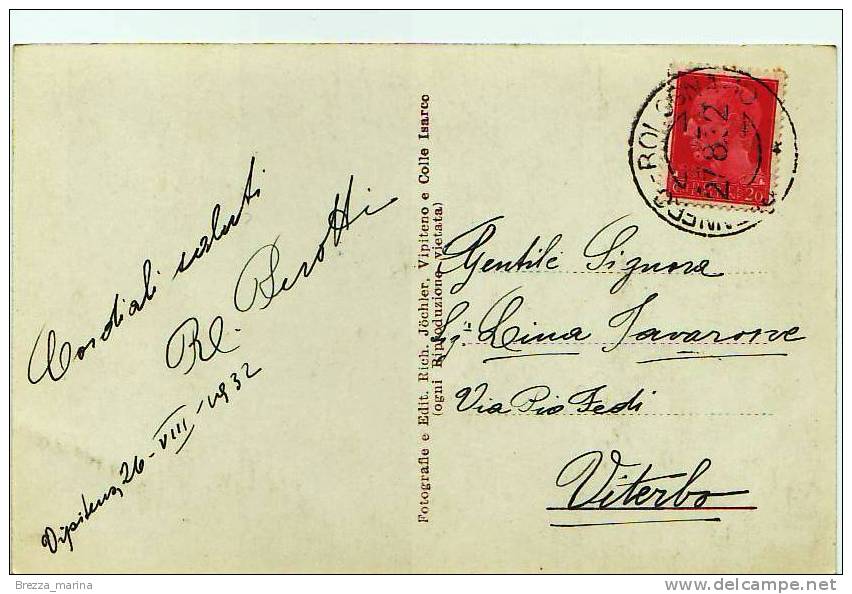 Cordiali saluti
Vipiteno, 26-VIII-1932
Fotografie e Edit. Rich. Jöchler, Vipiteno e Colle Isarco
(ogni Riproduzione vietata)
27.8.32
Gentile Signora
Lina
Via Pio Fedi
Viterbo
Brezza_marina
delcampe.net